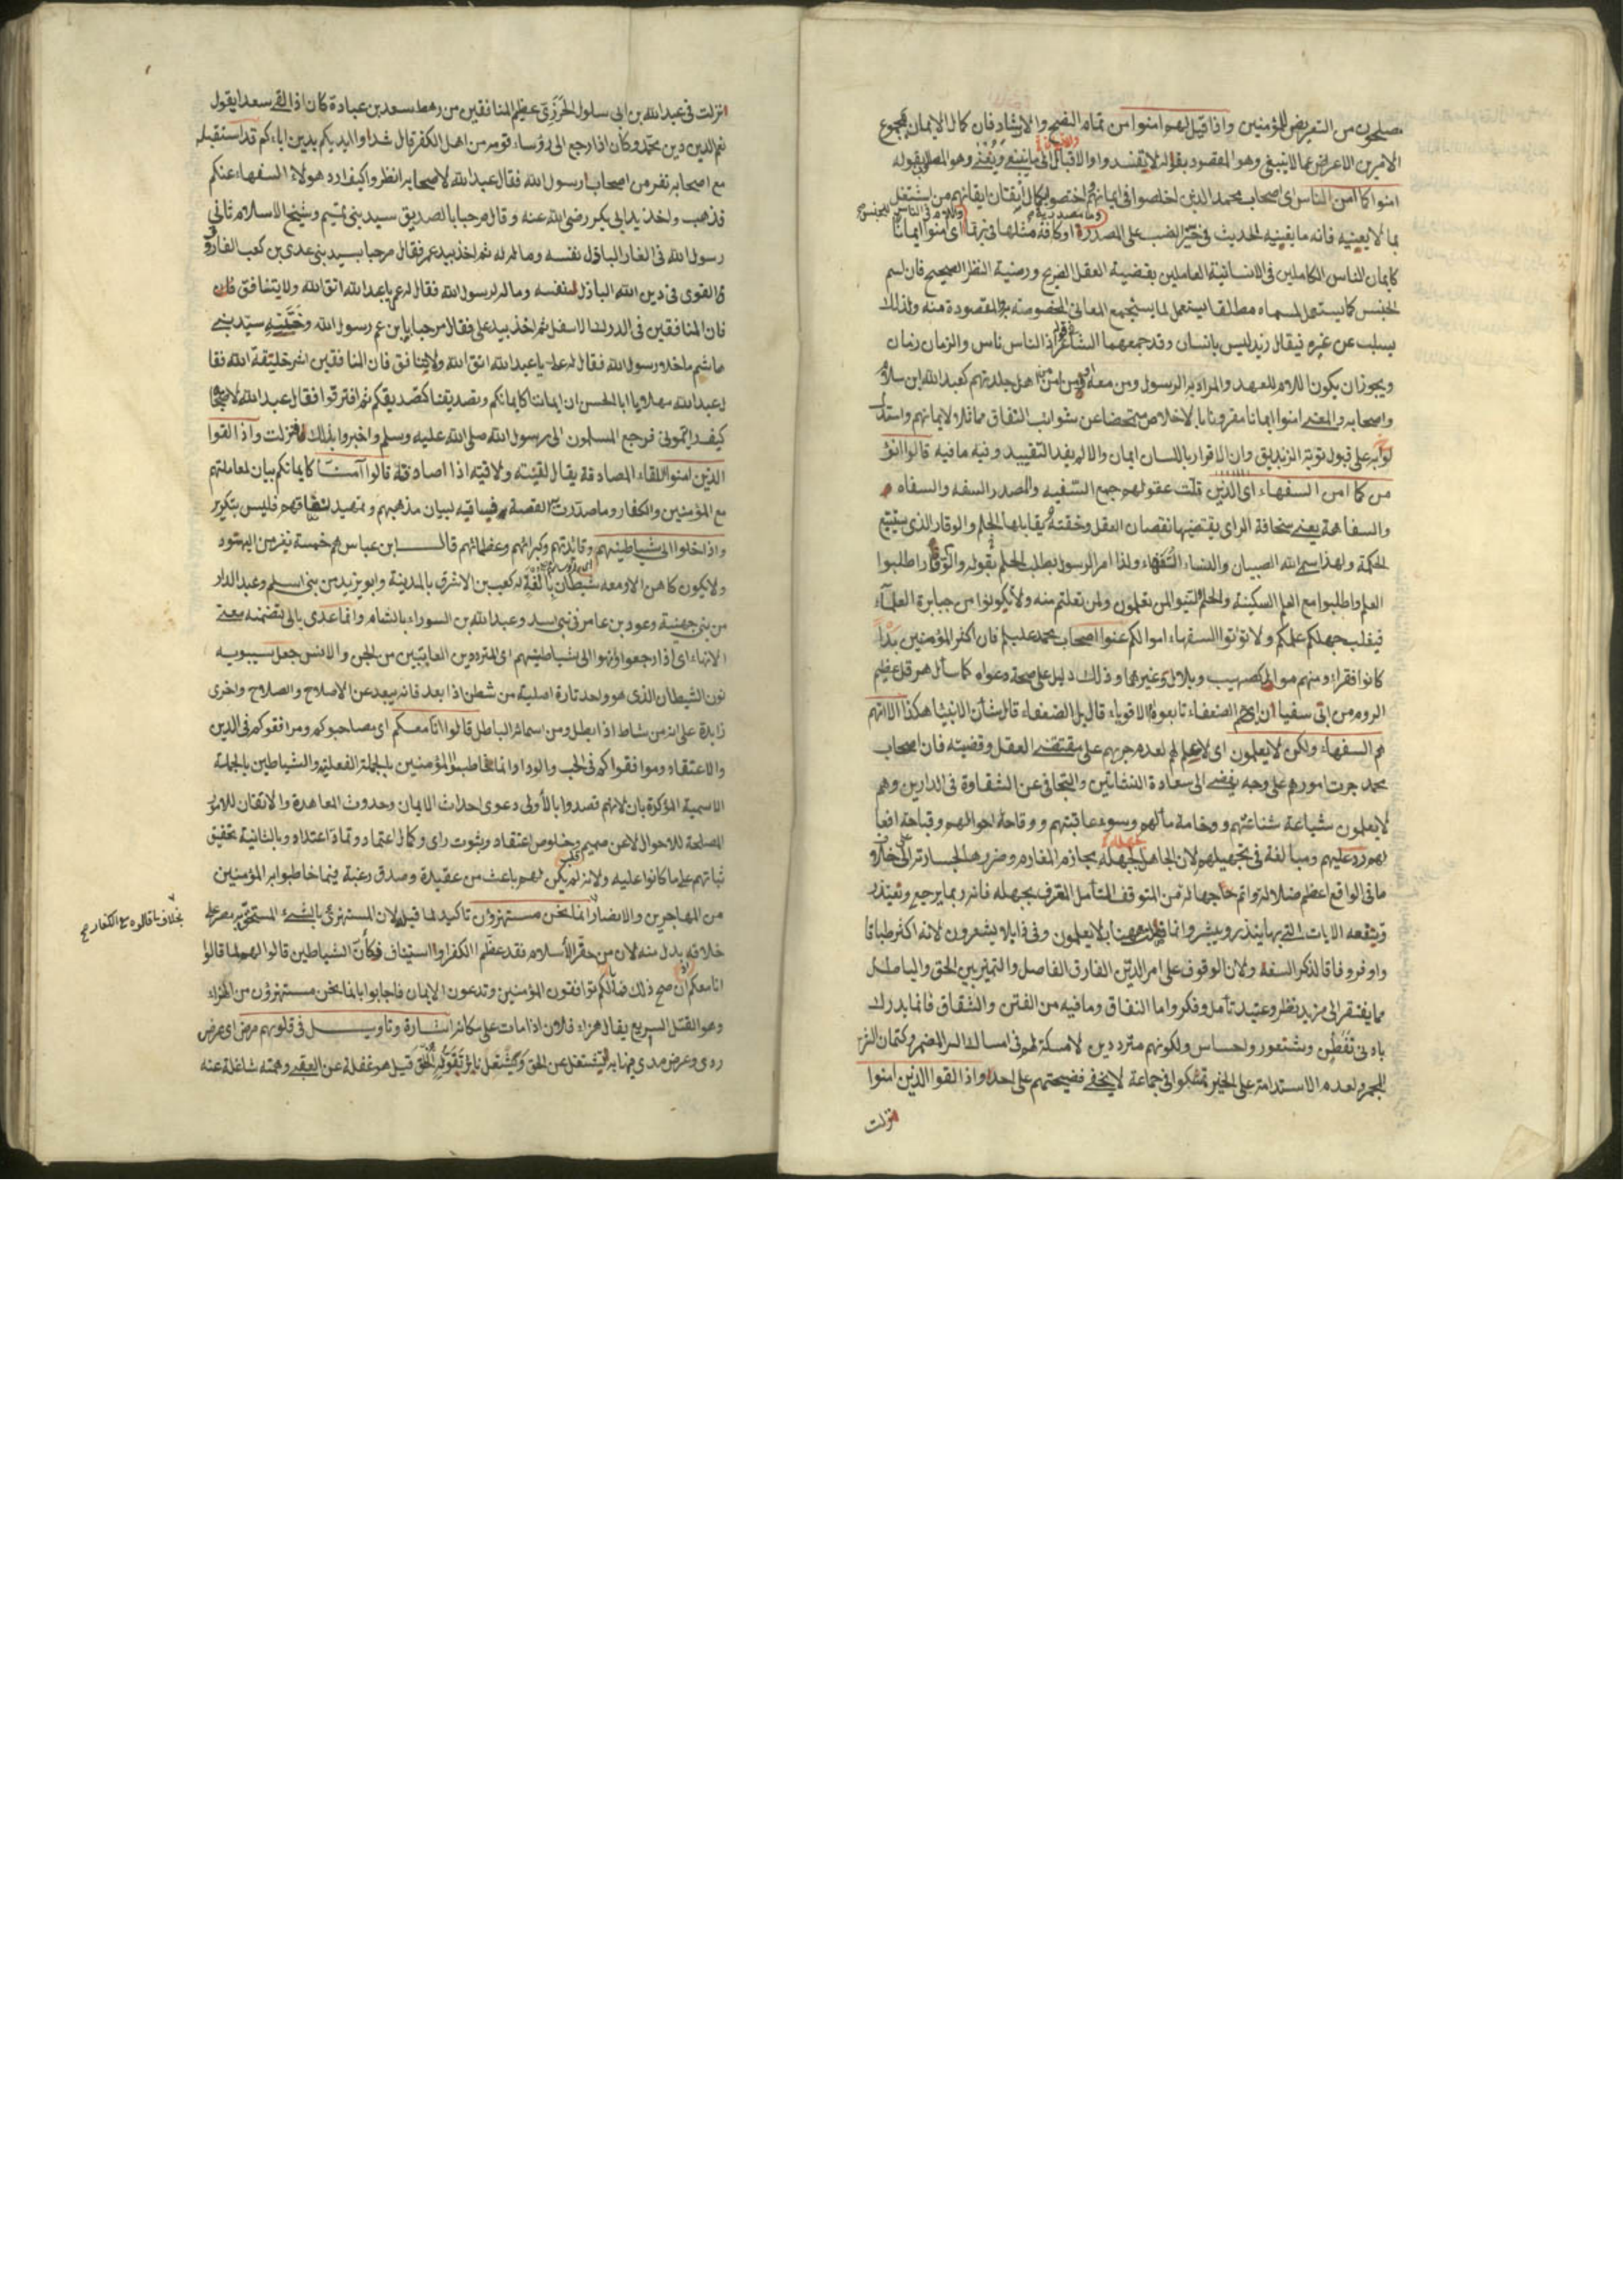 مصلحون من التعريض للمؤمنين واذا قيل لهم امنوا من تمام النصح والارشاد فان كمال الايمان بمجموع
الامرين الاعراض عما لا ينبغي وهو المقصود بقوله لا تفسدوا والاقبال الى ما ينبغي وهو المطلوب بقوله
امنوا كما امن الناس اى اصحاب محمد الذين اخلصوا فى ايمانهم اختصوا بكمال
بما لا يعنيه فانه ما يفنيه الحديث فى حيّز النصب على المصدرية او كافة مثلها فى ربما اى امنوا ايمانا
كايمان الناس الكاملين فى الانسانية العاملين بقضية العقل الصريح ورضية النظر الصحيح فان اسم
الجنس كما يستعمل لمسماه مطلقا يستعمل لما يستجمع المعاني المخصوصة به المقصودة منه ولذلك
يسلب عن غيره فيقال زيد ليس بانسان وقد جمعهما الشاعر فى قوله اذ الناس ناس والزمان زمان
ويجوز ان يكون اللام للعهد والمراد به الرسول ومن معه او من امن من اهل جلدتهم كعبد الله ابن سلام
واصحابه والمعنى امنوا ايمانا مقرونا بالاخلاص متمحضا عن شوائب النفاق مماثلا لايمانهم واستدل
به على قبول توبة الزنديق وان الاقرار باللسان ايمان والا لم يفد التقييد وفيه ما فيه قالوا انؤ
من كما امن السفهاء اى الذين قلت عقولهم جمع السفيه والمصدر السفه والسفاه
والسفاهة يعني سخافة الراى يقتضيها نقصان العقل وخفته يقابلها الحلم والوقار الذى يتبع
الحكمة ولهذا سمى الله الصبيان والنساء السفهاء ولذا امر الرسول بطلب الحلم بقوله والوقار اطلبوا
العلم واطلبوا مع العلم السكينة والحلم لينوا لمن تعلمون ولمن تعلمتم منه ولا تكونوا من جبابرة العلماء
فيغلب جهلكم علمكم ولا تؤتوا السفهاء اموالكم عنوا اصحاب محمد عليهم فان اكثر المؤمنين
كانوا فقراء ومنهم موالى كصهيب وبلال وغيرهما وذلك دليل على صحة دعواه كما سأل هرقل عظيم
الروم من ابى سفيان الصعفاء تابعوه ام الاقوياء قال بل الضعفاء قال شأن الانبياء هكذا الا انهم
هم السفهاء ولكن لا يعلمون اى لا علم لهم لعدم جريهم على مقتضى العقل وقضيته فان اصحاب
محمد جرت امورهم على وجه يفضى الى سعادة النشأتين والتجافى عن الشقاوة فى الدارين وهم
لا يعلمون شناعتهم ووخامة مآلهم وسوء عاقبتهم ووقاحة احوالهم وقباحة افعا
لهم رد عليهم ومبالغة فى تجهيلهم لان الجاهل بجهله الجازم على خلاف
ما فى الواقع اعظم ضلالة واتم جهالة من المتوقف المتأمل المعترف بجهله فانه ربما يرجع ويعتذر
وينفعه الايات التى بها ينذر ويبشر وانما فصلت ههنا بلا يعلمون وفى ذا بلا يشعرون لانه اكثر طباقا
واوفر وفاقا لذكر السفه ولان الوقوف على امر الدين الفارق الفاصل والتمييز بين الحق والباطل
مما يفتقر الى مزيد نظر وعتيد تأمل وفكر واما النفاق وما فيه من الفتن والشقاق فانما يدرك
بادنى تفطن وشعور واحساس ولكونهم مترددين لا مسكة لهم فى امساك السر المضمر وكتمان
لعدم الاستدامة على الخير جماعة لا يخفى فضيحتهم على احد واذا لقوا الذين امنوا
نزلت
نزلت فى عبد الله بن ابى سلول الخزرجى عظيم المنافقين من رهط سعد بن عبادة كان اذا لقى سعدا يقول
نعم الدين دين محمد وكان اذا رجع الى رؤساء قومه من اهل الكفر قال شدوا ايديكم بدين اباءكم قد استقبله
مع اصحابه نفر من اصحاب رسول الله فقال عبد الله لاصحابه انظروا كيف ارد هؤلاء السفهاء عنكم
فذهب واخذ بيد ابى بكر رضى الله عنه وقال مرحبا بالصديق سيد بنى تميم وشيخ الاسلام ثانى
رسول الله فى الغار الباذل نفسه وماله له ثم اخذ بيد عمر فقال مرحبا بسيد بنى عدى بن كعب الفاروق
القوى فى دين الله الباذل لنفسه وماله لرسول الله فقال له عمر يا عبد الله اتق الله ولا تنافق
فان المنافقين فى الدرك الاسفل ثم اخذ بيد على فقال مرحبا يا بن عم رسول الله وختنه سيد بنى
هاشم ما خلا رسول الله فقال له على يا عبد الله اتق الله ولا تنافق فان المنافقين اشر خليقة الله فقا
ل عبد الله مهلا يا ابا الحسن ان ايماننا كايمانكم وتصديقنا كتصديقكم ثم افترقوا فقال عبد الله لاصحابه
كيف رأيتمونى فرجع المسلمون الى رسول الله صلى الله عليه وسلم واخبروا بذلك فنزلت واذا لقوا
الذين امنوا اللقاء المصادفة يقال لقيته ولاقيته اذا صادفته قالوا آمنا كايمانكم بيان لمعاملتهم
مع المؤمنين والكفار وما صدرت القصة به فمساقه لبيان مذهبهم وتمهيد نفاقهم فليس بتكرير
واذا خلوا الى شياطينهم وقائدتهم وكبرائهم وعظمائهم قال ابن عباس هم خمسة نفر من اليهود
ولا يكون كاهن الا ومعه شيطان كعب بن الاشرف بالمدينة وابو بردة من بنى اسلم وعبد الدار
من بنى جهينة وعود بن عامر فى بنى اسد وعبد الله بن السوداء بالشام وانما عدى بالى لتضمنه معنى
الانهاء اى اذا رجعوا وانهوا الى شياطينهم اى المتردين العاتبين من الجن والانس جعل سيبويه
نون الشيطان الذى هو واحد تارة اصلية من شطن اذا بعد فانه يبعد عن الاصلاح والصلاح واخرى
زايدة على انه من شاط اذا بطل ومن اسمائه الباطل قالوا انا معكم اى مصاحبوكم ومرافقوكم فى الدين
والاعتقاد وموافقوكم فى الحب والوداد وانما خاطبوا المؤمنين بالجملة الفعلية والشياطين بالجملة
الاسمية المؤكدة بان لانهم قصدوا بالاولى دعوى احداث الايمان وحدوث المعاهدة والاتقان للامور
المصلحة للاحوال لا عن صميم قلب وخلوص اعتقاد وثبوت راى وكمال اعتماد وبالثانية تحقيق
ثباتهم على ما كانوا عليه ولانه لم يكن لهم باعث من عقيدة وصدق رغبة فيما خاطبوا به المؤمنين
من المهاجرين والانصار انما نحن مستهزؤن تاكيد لما قبله لان المستهزئ بالشىء المستخف به مصر على
خلافه بدل منه لان من حقر الاسلام فقد عظم الكفر او استيناف فكأن الشياطين قالوا لهم لما قالوا
انا معكم ان صح ذلك فما لكم توافقون المؤمنين وتدعون الايمان فاجابوا بانما نحن مستهزؤن من الهزء
وهو القتل السريع يقال هزاء فلان اذا مات على مكانه اشارة وتاويل فى قلوبهم مرض اى عرض
ردى وعرض مدى عن الحق قيل هو غفلة عن العقبى وهمته شاغلة عنه
بخلاف ما قالوه مع الكفار صح